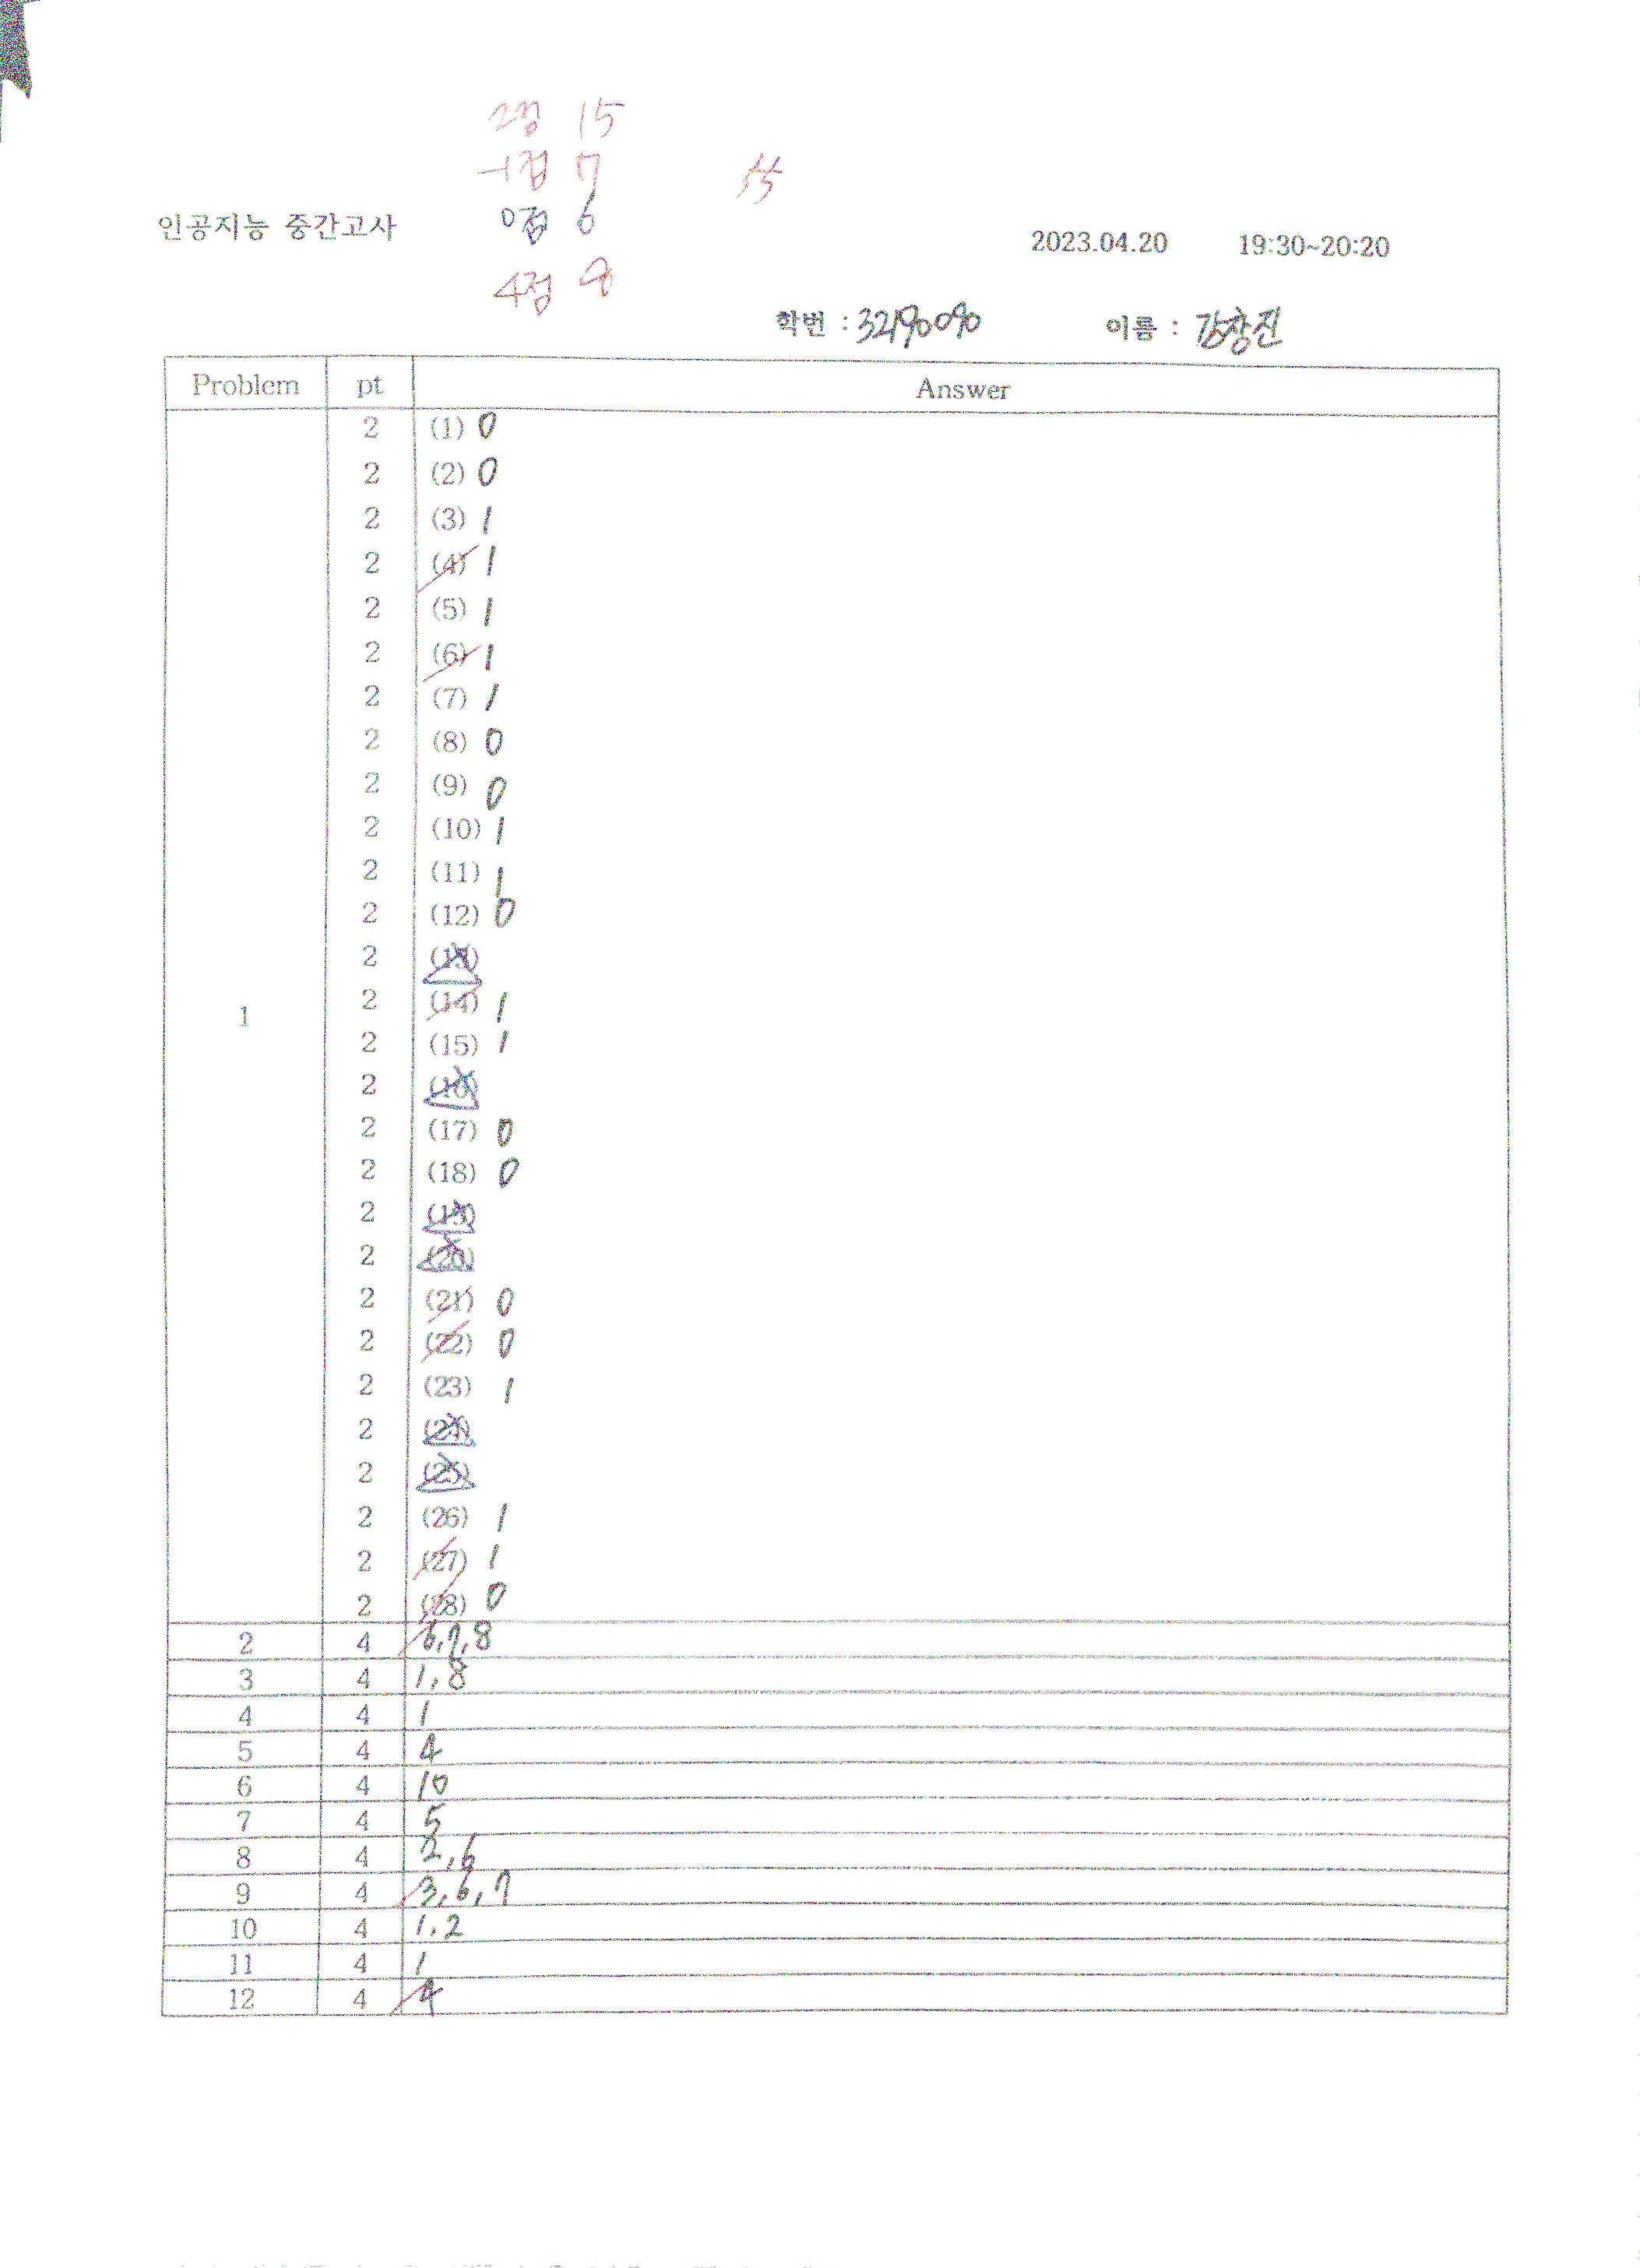 2점 15
-1점 7
55
인공지능 중간고사
0점 6
2023.04.20 19:30~20:20
4점 8
학번 : 이름 : 김창진
Problem pt Answer
2 (1) 0
2 (2) 0
2 (3) 1
2 (4) 1
2 (5) 1
2 (6) 1
2 (7) 1
2 (8) 0
2 (9) 0
2 (10) 1
2 (11) 1
2 (12) 0
2 (13)
2 (14) 1
1
2 (15) 1
2 (16)
2 (17) 0
2 (18) 0
2 (19)
2 (20)
2 (21) 0
2 (22) 0
2 (23) 1
2 (24)
2 (25)
2 (26) 1
2 (27) 1
2 (28) 0
2 4 6,7,8
3 4 1,8
4 4 1
5 4 4
6 4 10
7 4 5
8 4 2,6
9 4 3,6,7
10 4 1,2
11 4 1
12 4 4